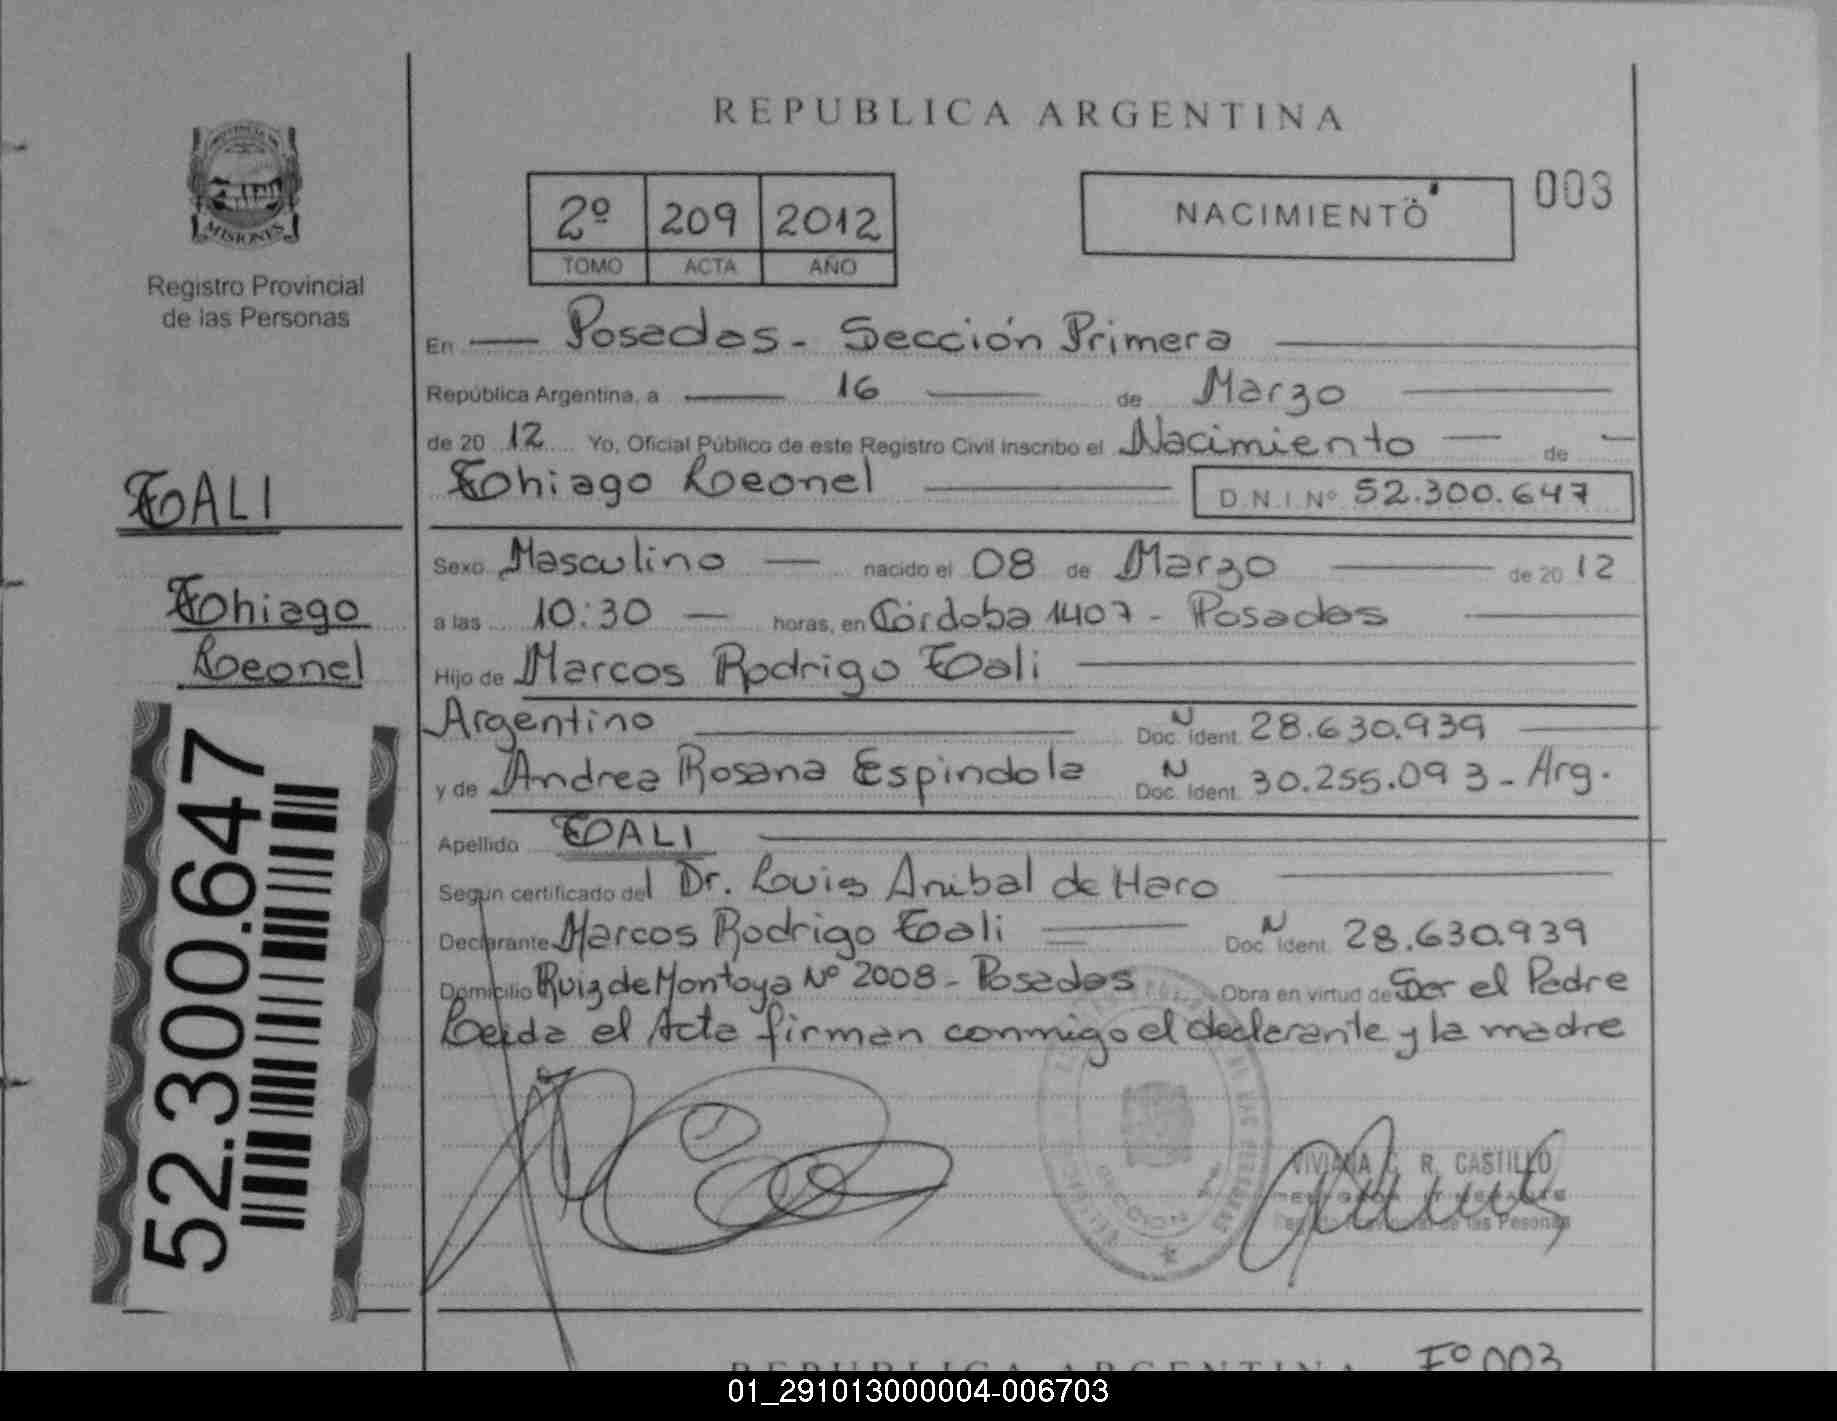 REPUBLICA ARGENTINA
003
2º 209 2012
TOMO ACTA AÑO
NACIMIENTO
MISIONES
Registro Provincial
de las Personas
En Posadas - Sección Primera
República Argentina, a 16 de Marzo
de 20 12 Yo, Oficial Público de este Registro Civil inscribo el Nacimiento de
Thiago Leonel D.N.I. Nº 52.300.647
TALI
Thiago
Leonel
Sexo Masculino nacido el 08 de Marzo de 20 12
a las 10:30 horas, en Córdoba 1407 - Posadas
Hijo de Marcos Rodrigo Tali
Argentino Doc. Ident. N 28.630.939
y de Andrea Rosana Espindola Doc. Ident. N 30.255.093 - Arg.
Apellido TALI
Según certificado del Dr. Louis Anibal de Haro
Declarante Marcos Rodrigo Tali Doc. Ident. N 28.630.939
Domicilio Ruiz de Montoya Nº 2008 - Posadas Obra en virtud de Ser el Padre
Leida el Acta firman conmigo el declarante y la madre
52.300.647
VIVIANA C. R. CASTILLO
de las Pesonas
REPUBLICA ARGENTINA Fº 003
01_291013000004-006703